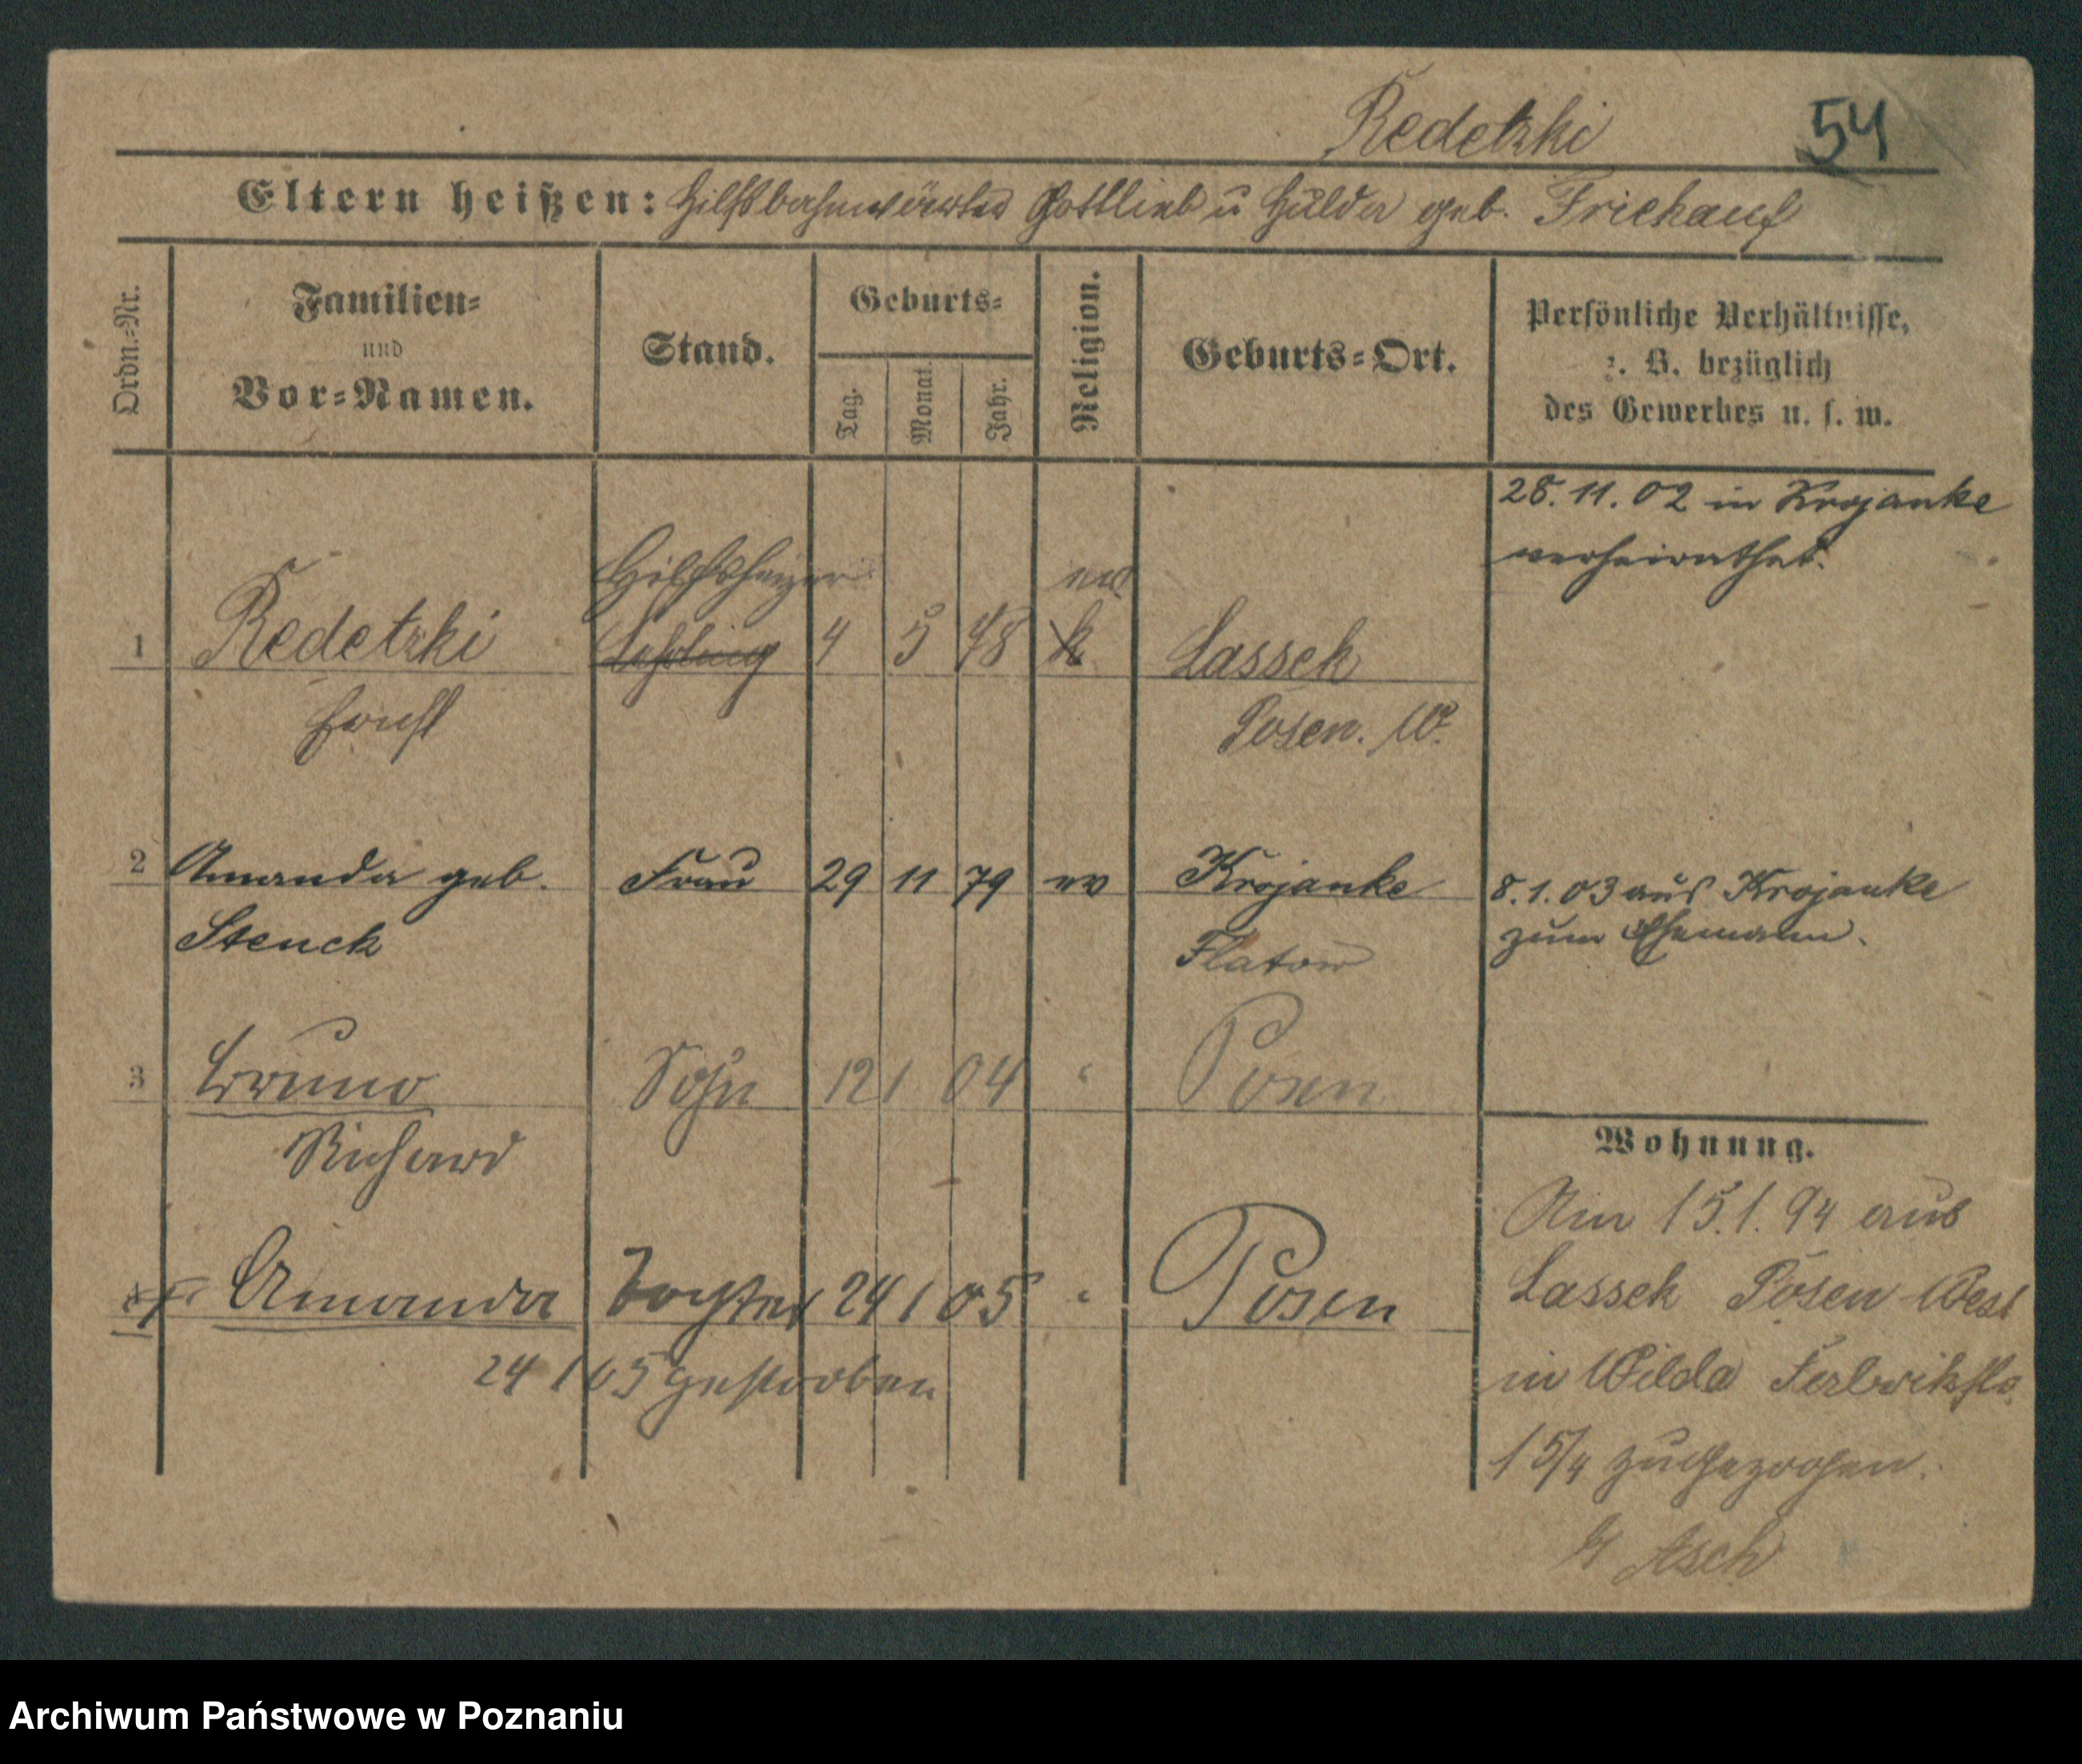 Redetzki 54
Eltern heißen: Hilfsbahnwärter Gottlieb u Hulda geb. Friekauf
Ordn.-Nr.
Familien-
und
Vor-Namen.
Stand.
Geburts-
Tag. Monat. Jahr.
Religion.
Geburts-Ort.
Persönliche Verhältnisse,
z. B. bezüglich
des Gewerbes u. s. w.
28.11.02 in Krojanke
verheirathet.
Hilfsheizer ev
1 Redetzki Lehrling 4 5 78 k Lassek
Ernst Posen. W.
2 Amanda geb. Frau 29 11 79 ev Krojanke 8.1.03 aus Krojanke
Stenck Flatow zum Ehemann.
3 Bruno Sohn 12 1 04 " Posen
Richard
Wohnung.
Am 15.1.94 aus
Amanda Tochter 24 1 05 " Posen
Lassek Posen West
24 1 05 gestorben
in Wilda
15/4 zugezogen.
Asch
Archiwum Państwowe w Poznaniu